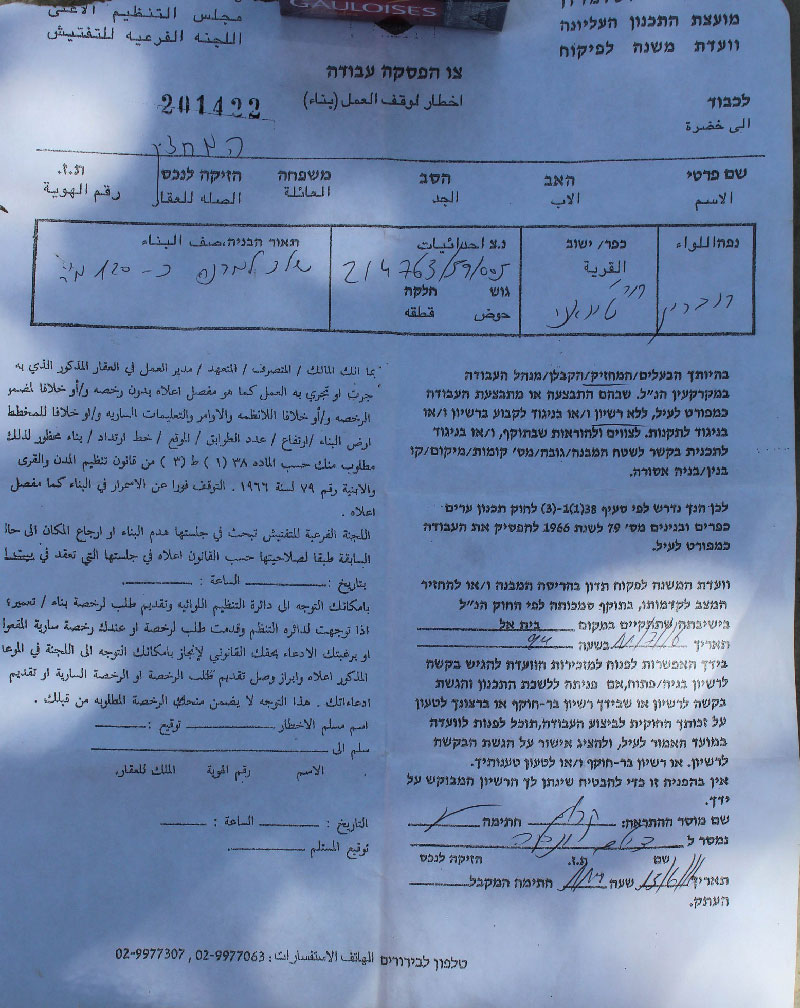 GAULOISES
מועצת התכנון העליונה
וועדת משנה לפיקוח
مجلس التنظيم الأعلى
اللجنه الفرعيه للتفتيش
צו הפסקת עבודה
اخطار لوقف العمل (بناء)
201422
לכבוד
الى حضرة
שם פרטי האב הסב משפחה הזיקה לנכס ת.ז.
الاسم الاب الجد العائلة الصله للعقار رقم الهوية
נפה اللواء
כפר/ ישוב
القرية
נ.צ احداثيات
214763/59/005
גוש חלקה
حوض قطقه
תאור הבניה، صف البناء
בהיותך הבעלים/המחזיק/הקבלן/מנהל העבודה
במקרקעין הנ"ל. שבהם התבצעה או מתבצעת העבודה
כמפורט לעיל, ללא רשיון ו/או בניגוד לקבוע ברשיון ו/או
בניגוד לתקנות. לצווים ולהוראות שבתוקף, ו/או בניגוד
לתכנית בקשר לשטח המבנה/גובה/מס' קומות/מיקום/קו
בנין/בניה אסורה.
לכן הנך נדרש לפי סעיף 38(1)-1(3) לחוק תכנון ערים
כפרים ובנינים מס' 79 לשנת 1966 להפסיק את העבודה
כמפורט לעיל.
וועדת המשנה לפקוח תדון בהריסת המבנה ו/או להחזיר
המצב לקדמותו, בתוקף סמכותה לפי החוק הנ"ל
בישיבתה שתתקיים במקום בית אל
תאריך בשעה
בידך האפשרות לפנות למזכירות הוועדה להגיש בקשה
לרשיון בניה/פתוח, אם פניתה ללשכת התכנון והגשת
בקשה לרשיון או שבידך רשיון בר-חוקף או ברצונך לטעון
על זכותך החוקית לביצוע העבודה, תוכל לפנות לוועדה
במועד האמור לעיל, ולהציג אישור על הגשת הבקשה
לרשיון. או רשיון בר-חוקף ו/או לטעון טענותיך.
אין בהפניה זו כדי להבטיח שינתן לך הרשיון המבוקש על
ידך.
שם מוסר ההתראה: חתימה
נמסר ל
שם ת.ז. הזיקה לנכס
תאריך שעה חתימה המקבל
העתק.
بما انك المالك / المتصرف / المتعهد / مدير العمل في العقار المذكور الذي به
جرت او تجري به العمل كما هو مفصل اعلاه بدون رخصه و/أو خلافا لمضمر
الرخصه و/أو خلافا للانظمه والاوامر والتعليمات الساريه و/او خلافا للمخطط
ارض البناء / ارتفاع / عدد الطوابق / الموقع / خط ارتداد / بناء محظور لذلك
مطلوب منك حسب الماده ٣٨ (١) ط (٣) من قانون تنظيم المدن والقرى
والابنية رقم ٧٩ لسنة ١٩٦٦. التوقف فورا عن الاسمرار في البناء كما مفصل
اعلاه.
اللجنة الفرعية للتفتيش تبحث في جلستها هدم البناء او ارجاع المكان الى حالـ
السابقة طبقا لصلاحيتها حسب القانون اعلاه في جلستها التي تعقد في
بتاريخ : الساعة :
بامكانك التوجه الى دائرة التنظيم اللوائيه وتقديم طلب لرخصة بناء / تعمير؟
اذا توجهت لدائره التنظم وقدمت طلب لرخصة او عندك رخصة سارية المفعوا
او برغبتك الادعاء بحقك القانوني لإنجاز بامكانك التوجه الى اللجنة في الموعا
المذكور اعلاه وابراز وصل تقديم طلب الرخصة او الرخصة السارية او تقديم
ادعاءاتك. هذا التوجه لا يضمن منحك الرخصة المطلوبه من قبلك.
اسم مسلم الاخطار توقيع :
سلم الى
الاسم رقم الهوية الملك للعقار.
التاريخ : الساعة :
توقيع المستلم
טלפון לבירורים الهاتف الاستفسارات : 02-9977063 , 02-9977307